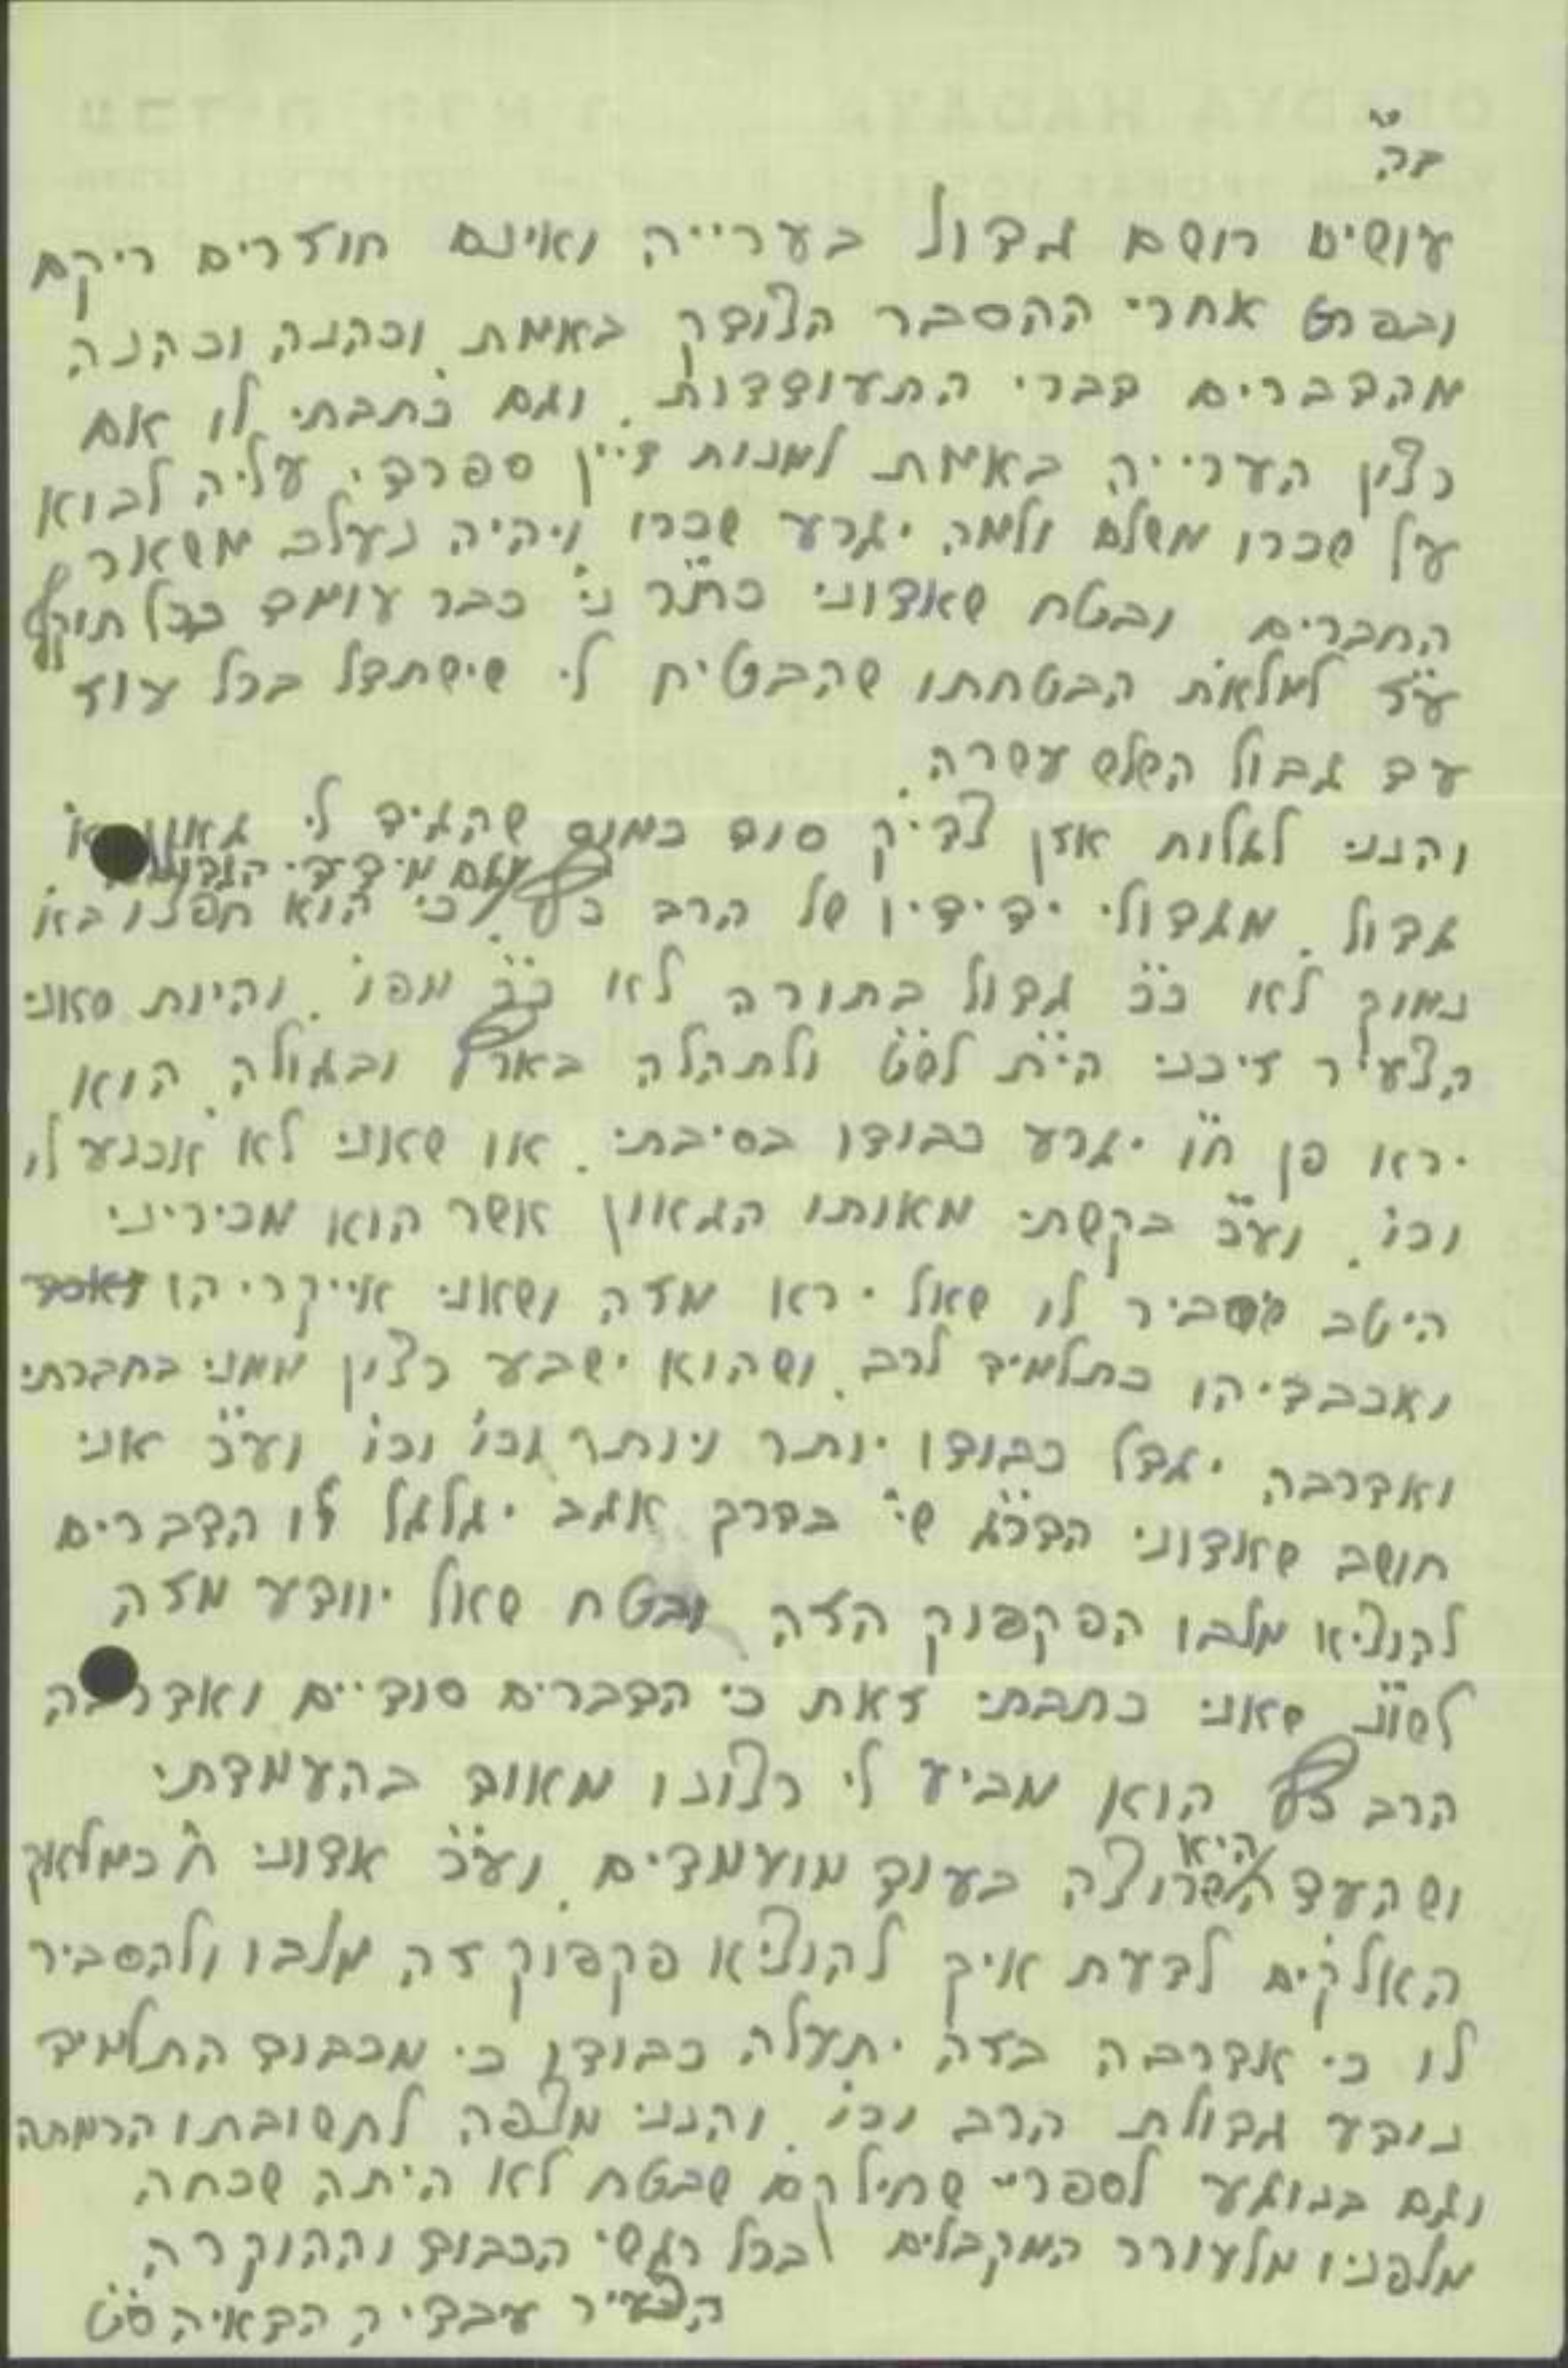 ב"ה
עושים רושם גדול בערייה ואינם חוזרים ריקם
ובפרט אחרי ההסבר הצודק באמת וכהנה וכהנה
מהדברים דברי התעודדות. וגם כתבתי לו אם
רצון הערייה באמת למנות דיין ספרדי עליה לבוא
על שכרו משלם ולמה יגרע שכרו ויהיה נעלב משאר
החברים ובטח שאדוני כתר ני' כבר עומד בכל תוקף
ע"ז למלאת הבטחתו שהבטיח לי שישתדל בכל עוז
עד גבול השלש עשרה.
והנני לגלות אזן צדיק סוד כמוס שהגיד לי גאון א'
גדול. מגדולי ידידיו של הרב כי הוא חפצו בא'
וגם מידידי
נמוך לא כ"כ גדול בתורה לא כ"כ מפו'. והיות שאני
הצעיר זיכני הי"ת לש"ט ולתהלה בארץ ובגולה הוא
ירא פן ח"ו יגרע כבודו בסיבתי. או שאני לא אכנע לו
וכו'. וע"כ בקשתי מאותו הגאון אשר הוא מכירני
היטב שיסביר לו שאל ירא מזה ושאני אייקריהו
ואכבדיהו כתלמיד לרב. ושהוא ישבע רצון ממני בחברתי
ואדרבה יגדל כבודו יותר ויותר וכו' וכו' וע"כ אני
חושב שאדוני הדר"ג שי' בדרך אגב יגלגל לו הדברים
להוציא מלבו הפקפוק הזה ובטח שאל יוודע מזה
לשו"נ שאני כתבתי זאת כי הדברים סודיים ואדרבה
הרב הוא מביע לי רצונו מאוד בהעמדתי
ושהעד היא רוצה בעוד מועמדים. וע"כ אדוני ח' כמלאך
האלקים לדעת איך להוציא פקפוק זה מלבו ולהסביר
לו כי אדרבה בזה יתעלה כבודו כי מכבוד התלמיד
נודע גדולת הרב וכו'. והנני מצפה לתשובתו הרמתה
וגם בנוגע לספרי שחילקם שבטח לא היתה שכחה
מלפניו מלעורר המקבלים בכל רגשי הכבוד וההוקרה
הצעיר עבדיה הדאיה ס"ט